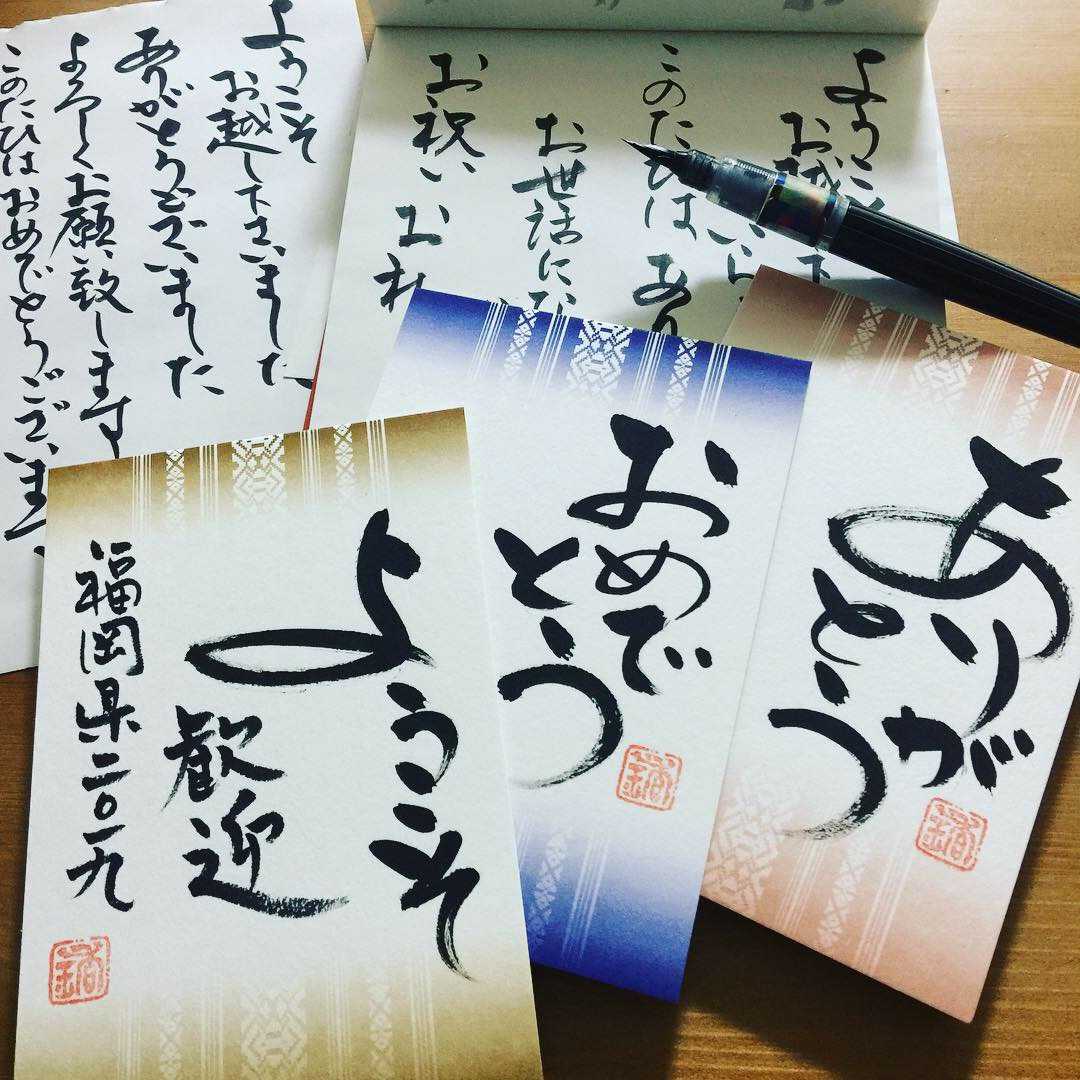 ようこそ
お越し下さいました
ありがとうございました
よろしくお願い致します
このたびはおめでとうございます
ようこ
お越
いら
このたびは あり
お世話に
お祝い お礼
ようこそ
歓迎
福岡県二〇一九
おめで
とう
ありが
とう